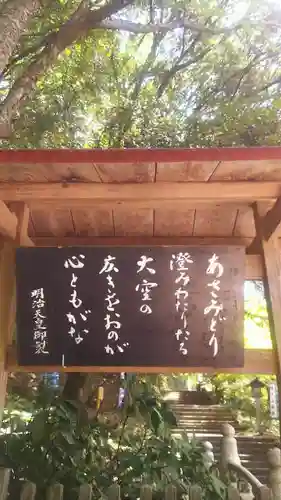 あさみどり
澄みわたりたる
大空の
広きをおのが
心ともがな
明治天皇御製